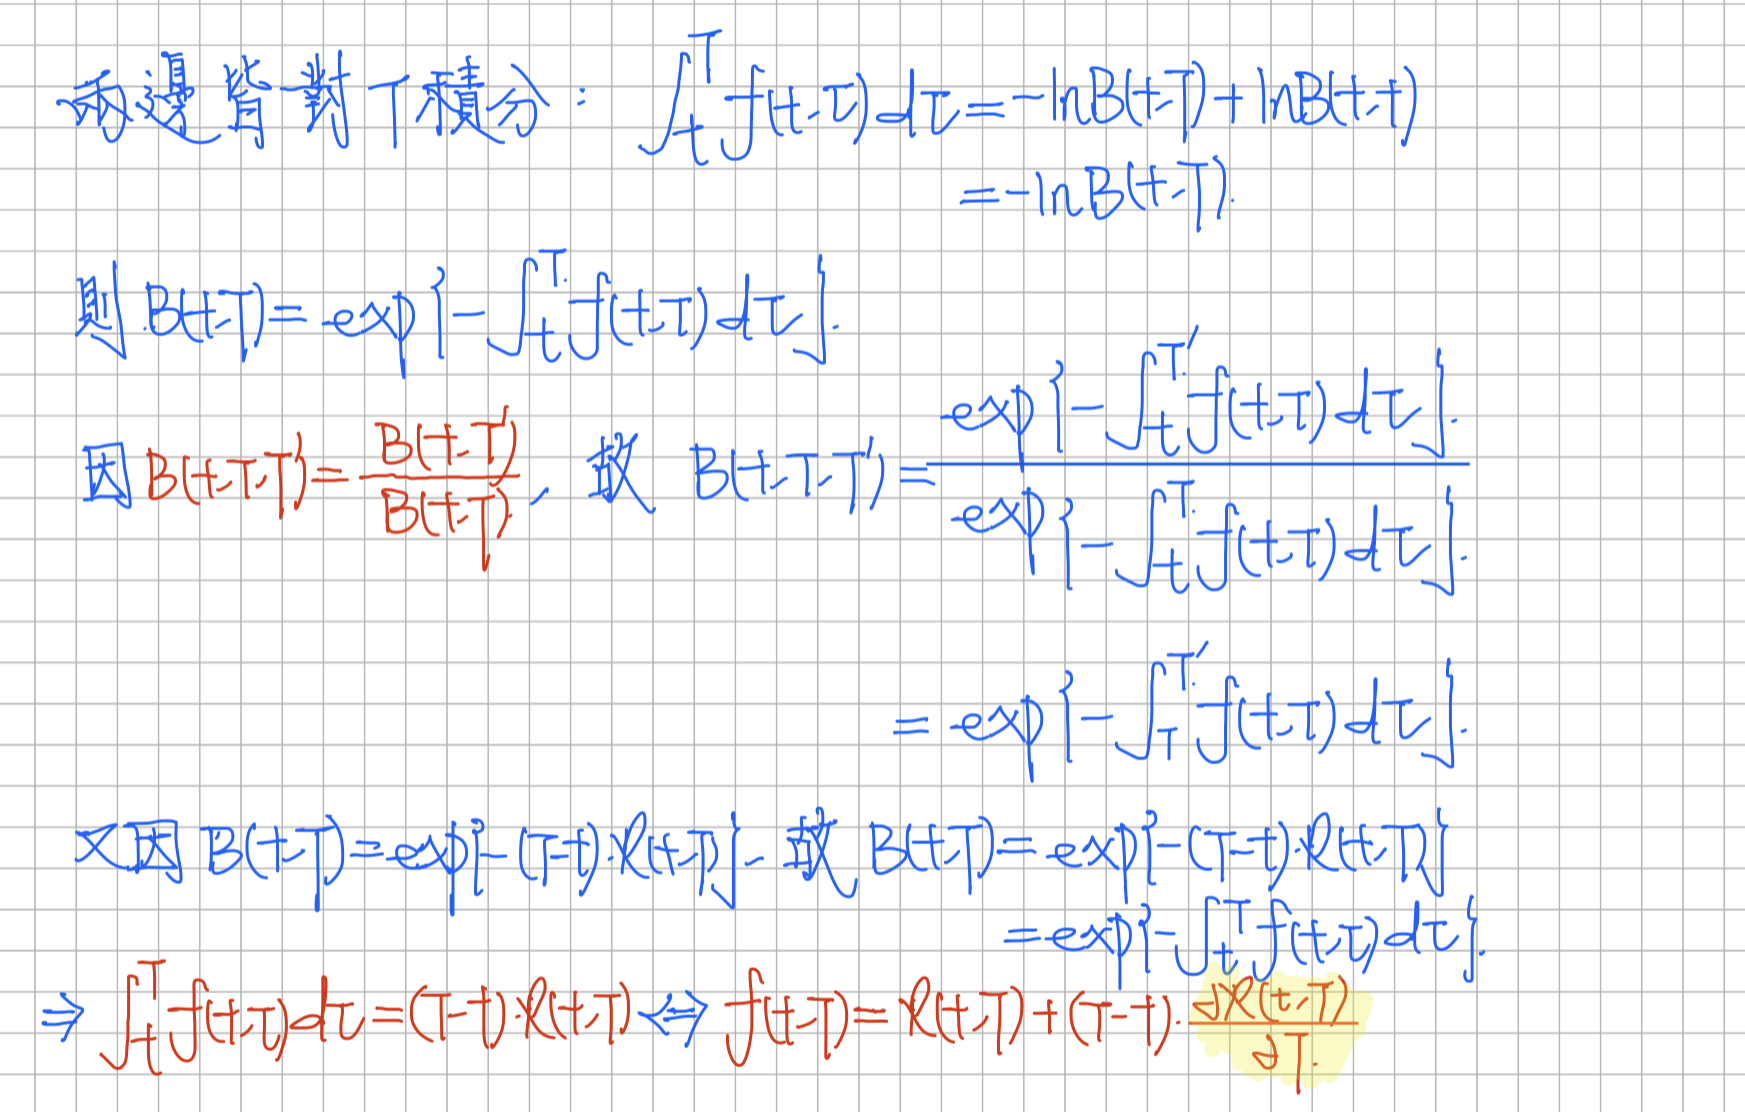 兩邊皆對T積分：∫_t^T f(t,τ)dτ = -lnB(t,T) + lnB(t,t)
= -lnB(t,T).
則 B(t,T) = exp{-∫_t^T f(t,τ)dτ}.
因 B(t,T,T') = B(t,T')/B(t,T), 故 B(t,T,T') = exp{-∫_t^T' f(t,τ)dτ}/exp{-∫_t^T f(t,τ)dτ}.
= exp{-∫_T^T' f(t,τ)dτ}.
又因 B(t,T) = exp{-(T-t)·R(t,T)}, 故 B(t,T) = exp{-(T-t)·R(t,T)}
= exp{-∫_t^T f(t,τ)dτ}.
⇒ ∫_t^T f(t,τ)dτ = (T-t)·R(t,T) ⇔ f(t,T) = R(t,T) + (T-t)·∂R(t,T)/∂T.